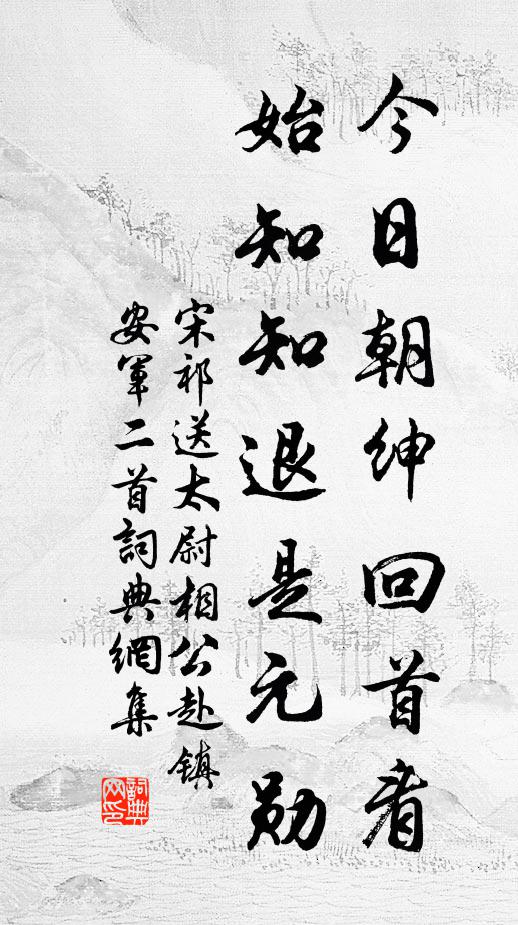 今日朝绅回首看
始知知退是元勋
宋祁送太尉相公赴镇
安军二首词典網集
詞典
网印